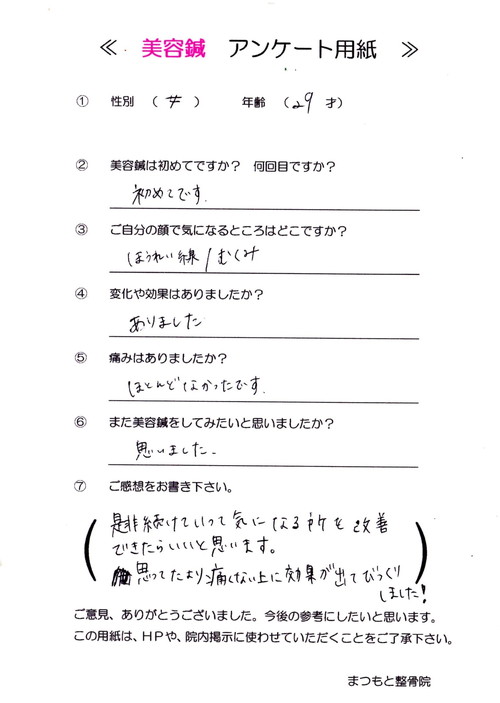 ≪ 美容鍼 アンケート用紙 ≫
① 性別 （女） 年齢 （29才）
② 美容鍼は初めてですか？ 何回目ですか？
初めてです.
③ ご自分の顔で気になるところはどこですか？
ほうれい線/むくみ
④ 変化や効果はありましたか？
ありました
⑤ 痛みはありましたか？
ほとんどなかったです.
⑥ また美容鍼をしてみたいと思いましたか？
思いました.
⑦ ご感想をお書き下さい。
是非続けていって気になる所を改善
できたらいいと思います。
思ってたより、痛くない上に効果が出てびっくり
しました!
ご意見、ありがとうございました。今後の参考にしたいと思います。
この用紙は、ＨＰや、院内掲示に使わせていただくことをご了承下さい。
まつもと整骨院